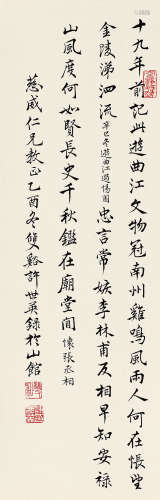 十九年前記此遊曲江文物冠南州雞鳴風雨人何在悵望
金陵涕泗流辛巳冬遊曲江過憶園忠言常嫉李林甫丞相早知安祿
山風度何如賢長史千秋鑑在廟堂間懷張丞相
慈威仁兄教正乙酉冬雙谿許世英錄於山館